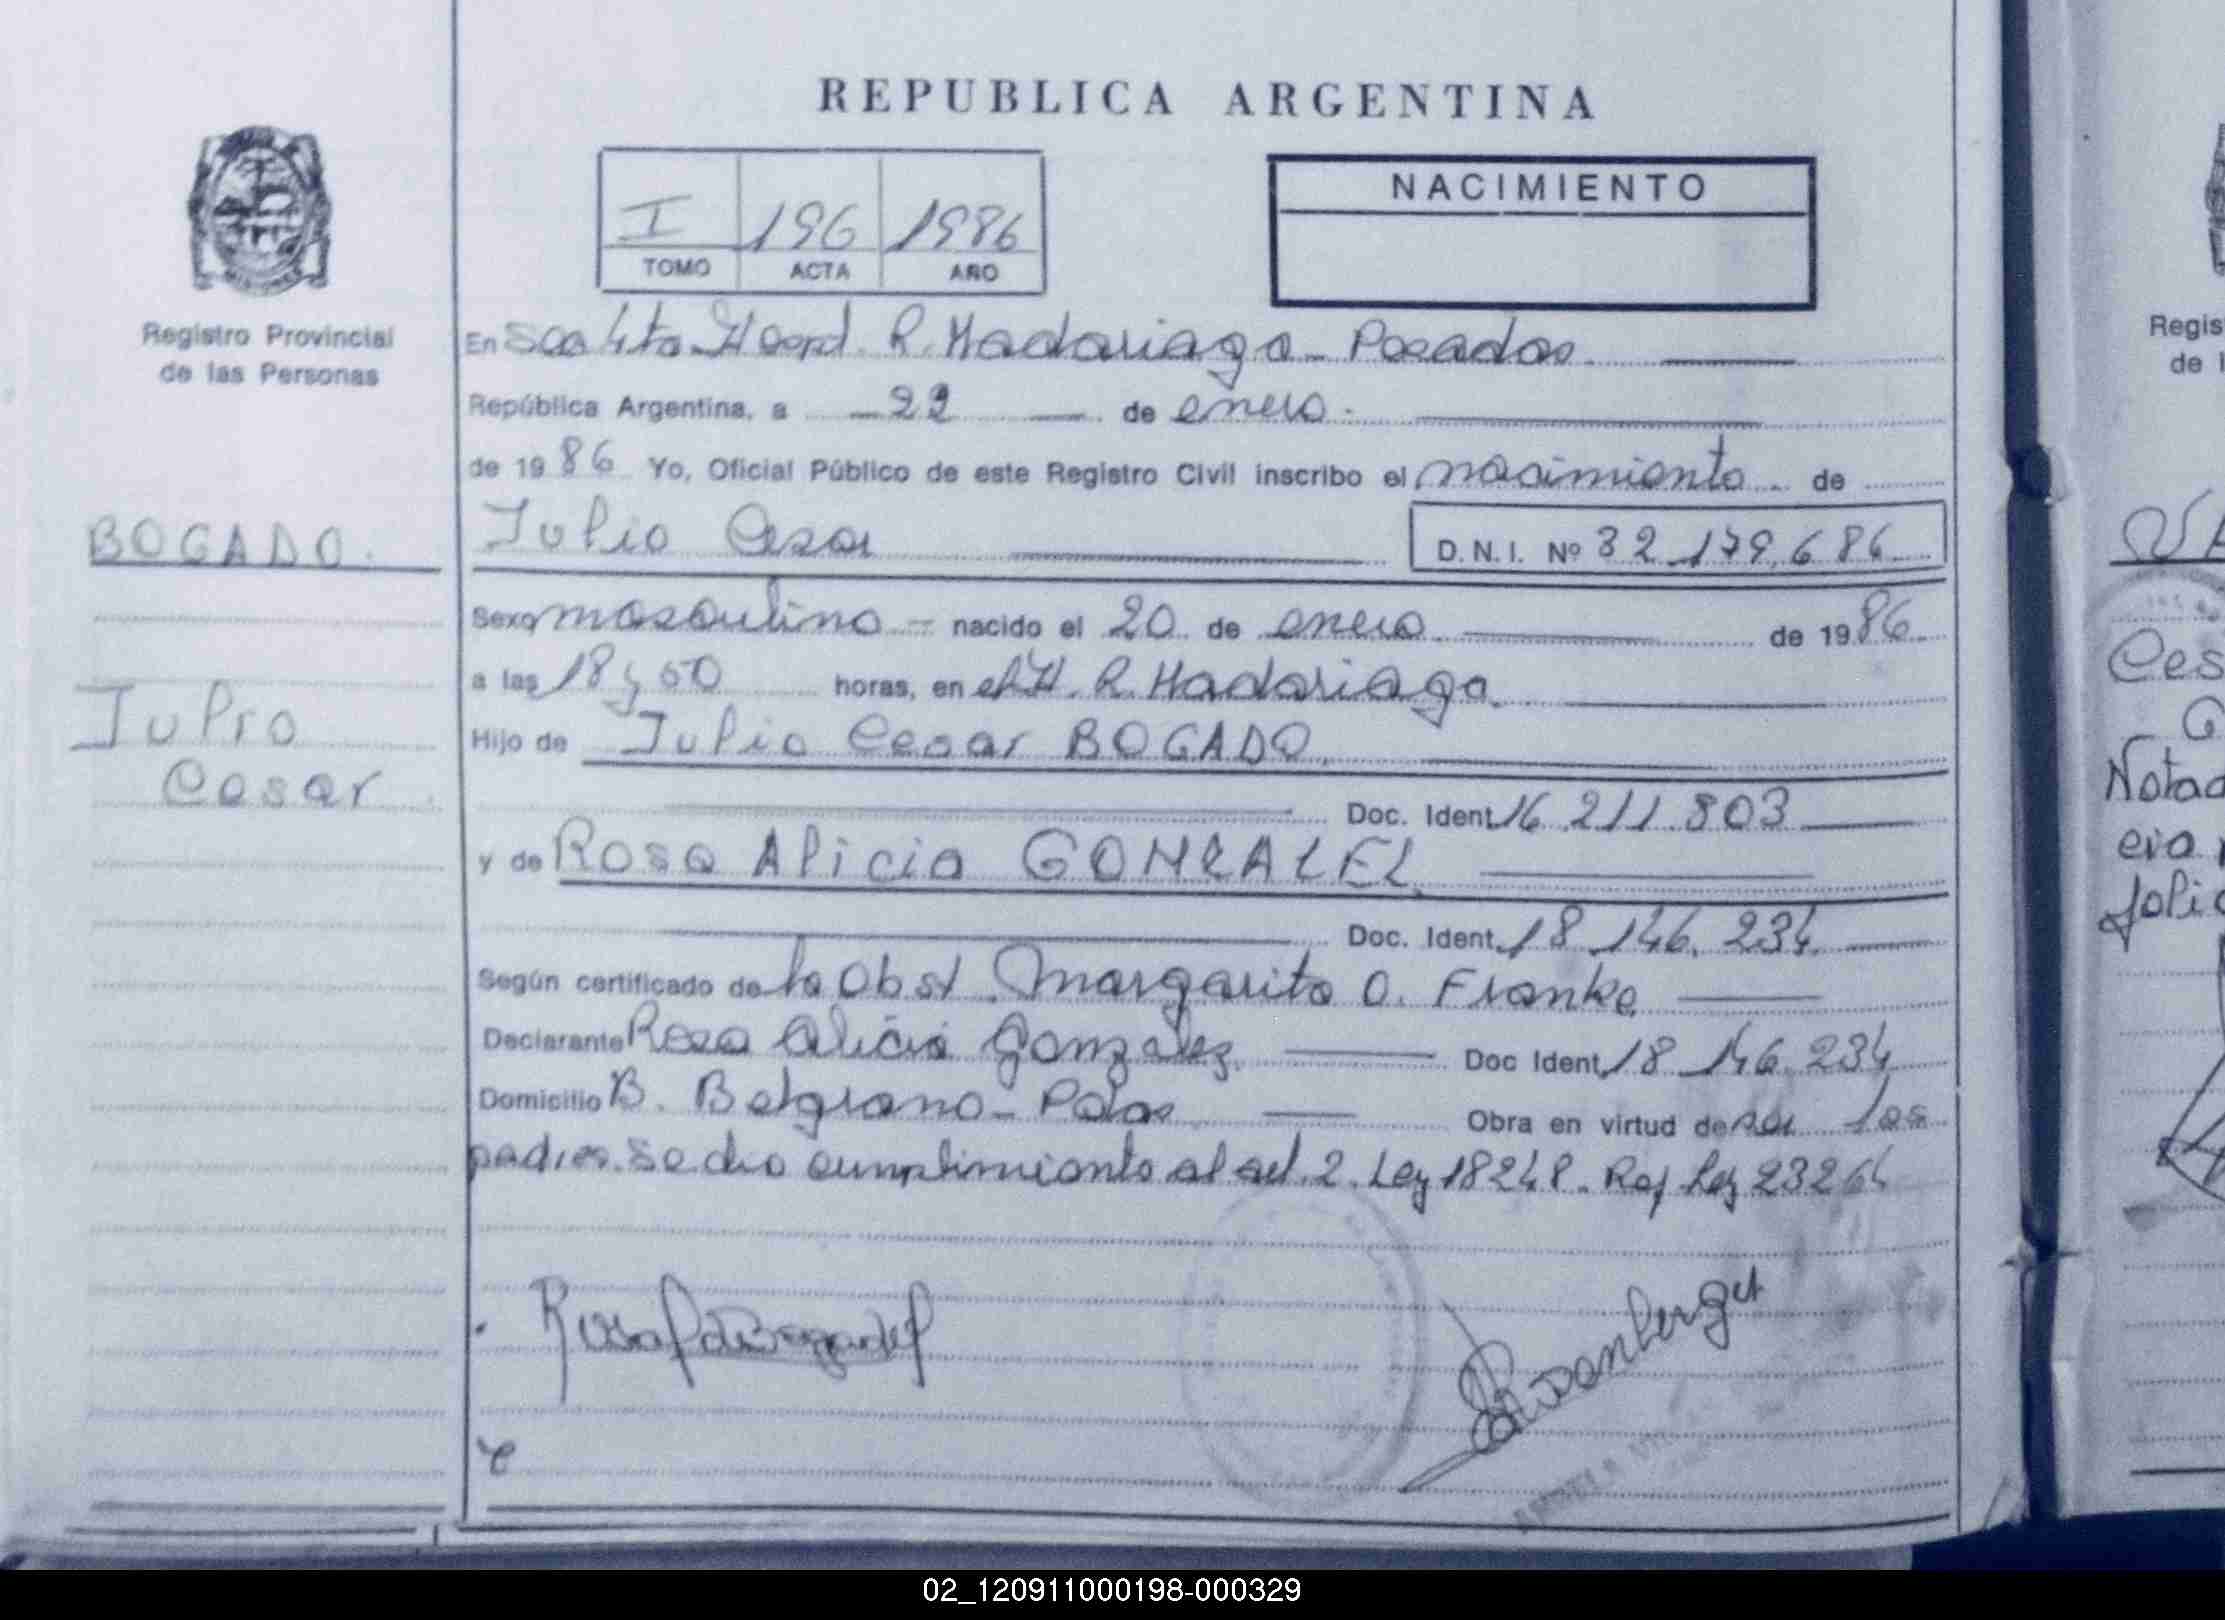 REPUBLICA ARGENTINA
I 196 1986
TOMO ACTA AÑO
NACIMIENTO
Registro Provincial
de las Personas
En Secc 4ta Hosp. R. Madariaga - Posadas
República Argentina, a 22 de enero.
de 1986 Yo, Oficial Público de este Registro Civil inscribo el nacimiento de
BOGADO.
Julio Cesar
D.N.I. Nº 32.179.686
Sexo masculino - nacido el 20 de enero de 1986
a las 18 y 50 horas, en el H. R. Madariaga.
Julio
Cesar
Hijo de Julio Cesar BOGADO.
Doc. Ident. 16.211.803
y de Rosa Alicia GONZALEZ.
Doc. Ident. 18.146.234
Según certificado de la Obst. Margarita O. Franke.
Declarante Rosa Alicia Gonzalez. Doc Ident. 18.146.234
Domicilio B. Belgrano - Pdas Obra en virtud de ser los
padres. Se dio cumplimiento al art. 2. Ley 18248. Ref Ley 23264
Regis
de l
Ces
Notad
era
folio
02_120911000198-000329